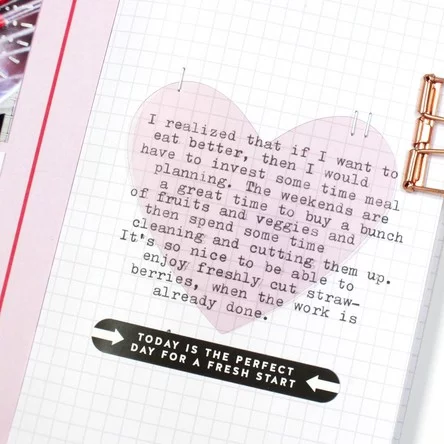 I realized that if I want to
eat better, then I would
have to invest some time meal
planning. The weekends are
a great time to buy a bunch
of fruits and veggies and
then spend some time
cleaning and cutting them up.
It's so nice to be able to
enjoy freshly cut straw-
berries, when the work is
already done.
TODAY IS THE PERFECT
DAY FOR A FRESH START